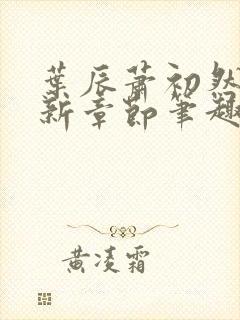 葉辰蕭初然
新章節筆趣
黃凌霜